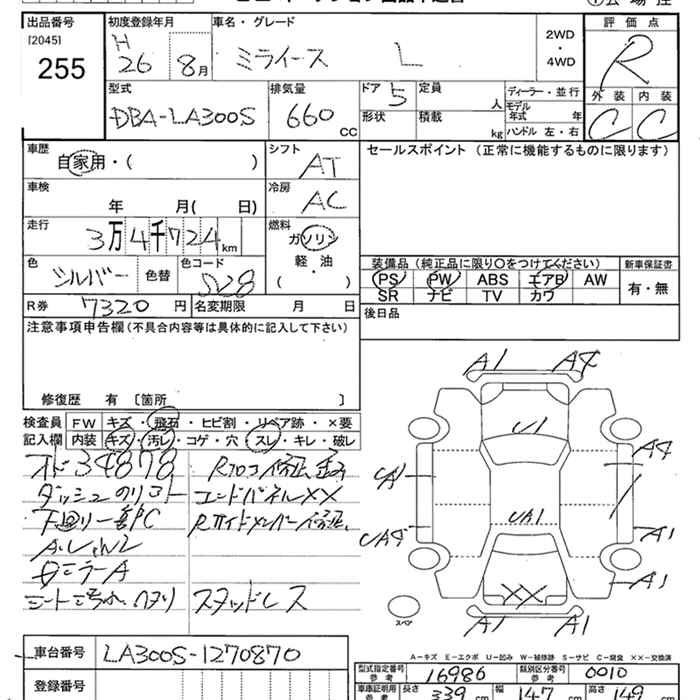 出品番号 初度登録年月 車名・グレード 評価点
[2045]
255
H 26 8月 ミライース L 2WD・4WD R
型式 排気量 ドア 定員 ディーラー・並行 外装 内装
DBA-LA300S 660 CC 5 人
形状 積載 kg モデル年式 年 ハンドル 左・右 C C
車歴 シフト セールスポイント (正常に機能するものに限ります)
自家用・( ) AT
車検 冷房
年 月( 日) AC
走行 燃料
3万4千724km ガソリン
軽・油
( )
色 色替 色コード
シルバー S28
装備品 (純正品に限り○をつけてください) 新車保証書
PS PW ABS エアB AW 有・無
SR ナビ TV カワ
R券 7320円 名変期限 月 日
後日品
注意事項申告欄(不具合内容等は具体的に記入して下さい)
修復歴 有 [箇所 ]
検査員 FW キズ・飛石・ヒビ割・リペア跡・×要
記入欄 内装 キズ・汚レ・コゲ・穴・スレ・キレ・破レ
34878
エンドパネルXX
下回り
スタッドレス
A1 A4
U1
A4
UA1
UA4 UA1 A1
A1
XX
A1 A1
スペア
A-キズ E-エクボ U-凹み W-補修跡 S-サビ C-腐食 XX-交換済
車台番号 LA300S-1270870
登録番号
型式指定番号 参考 16986 類別区分番号 参考 0010
車庫証明用 参考 長さ 339 cm 幅 147 cm 高さ 149 cm